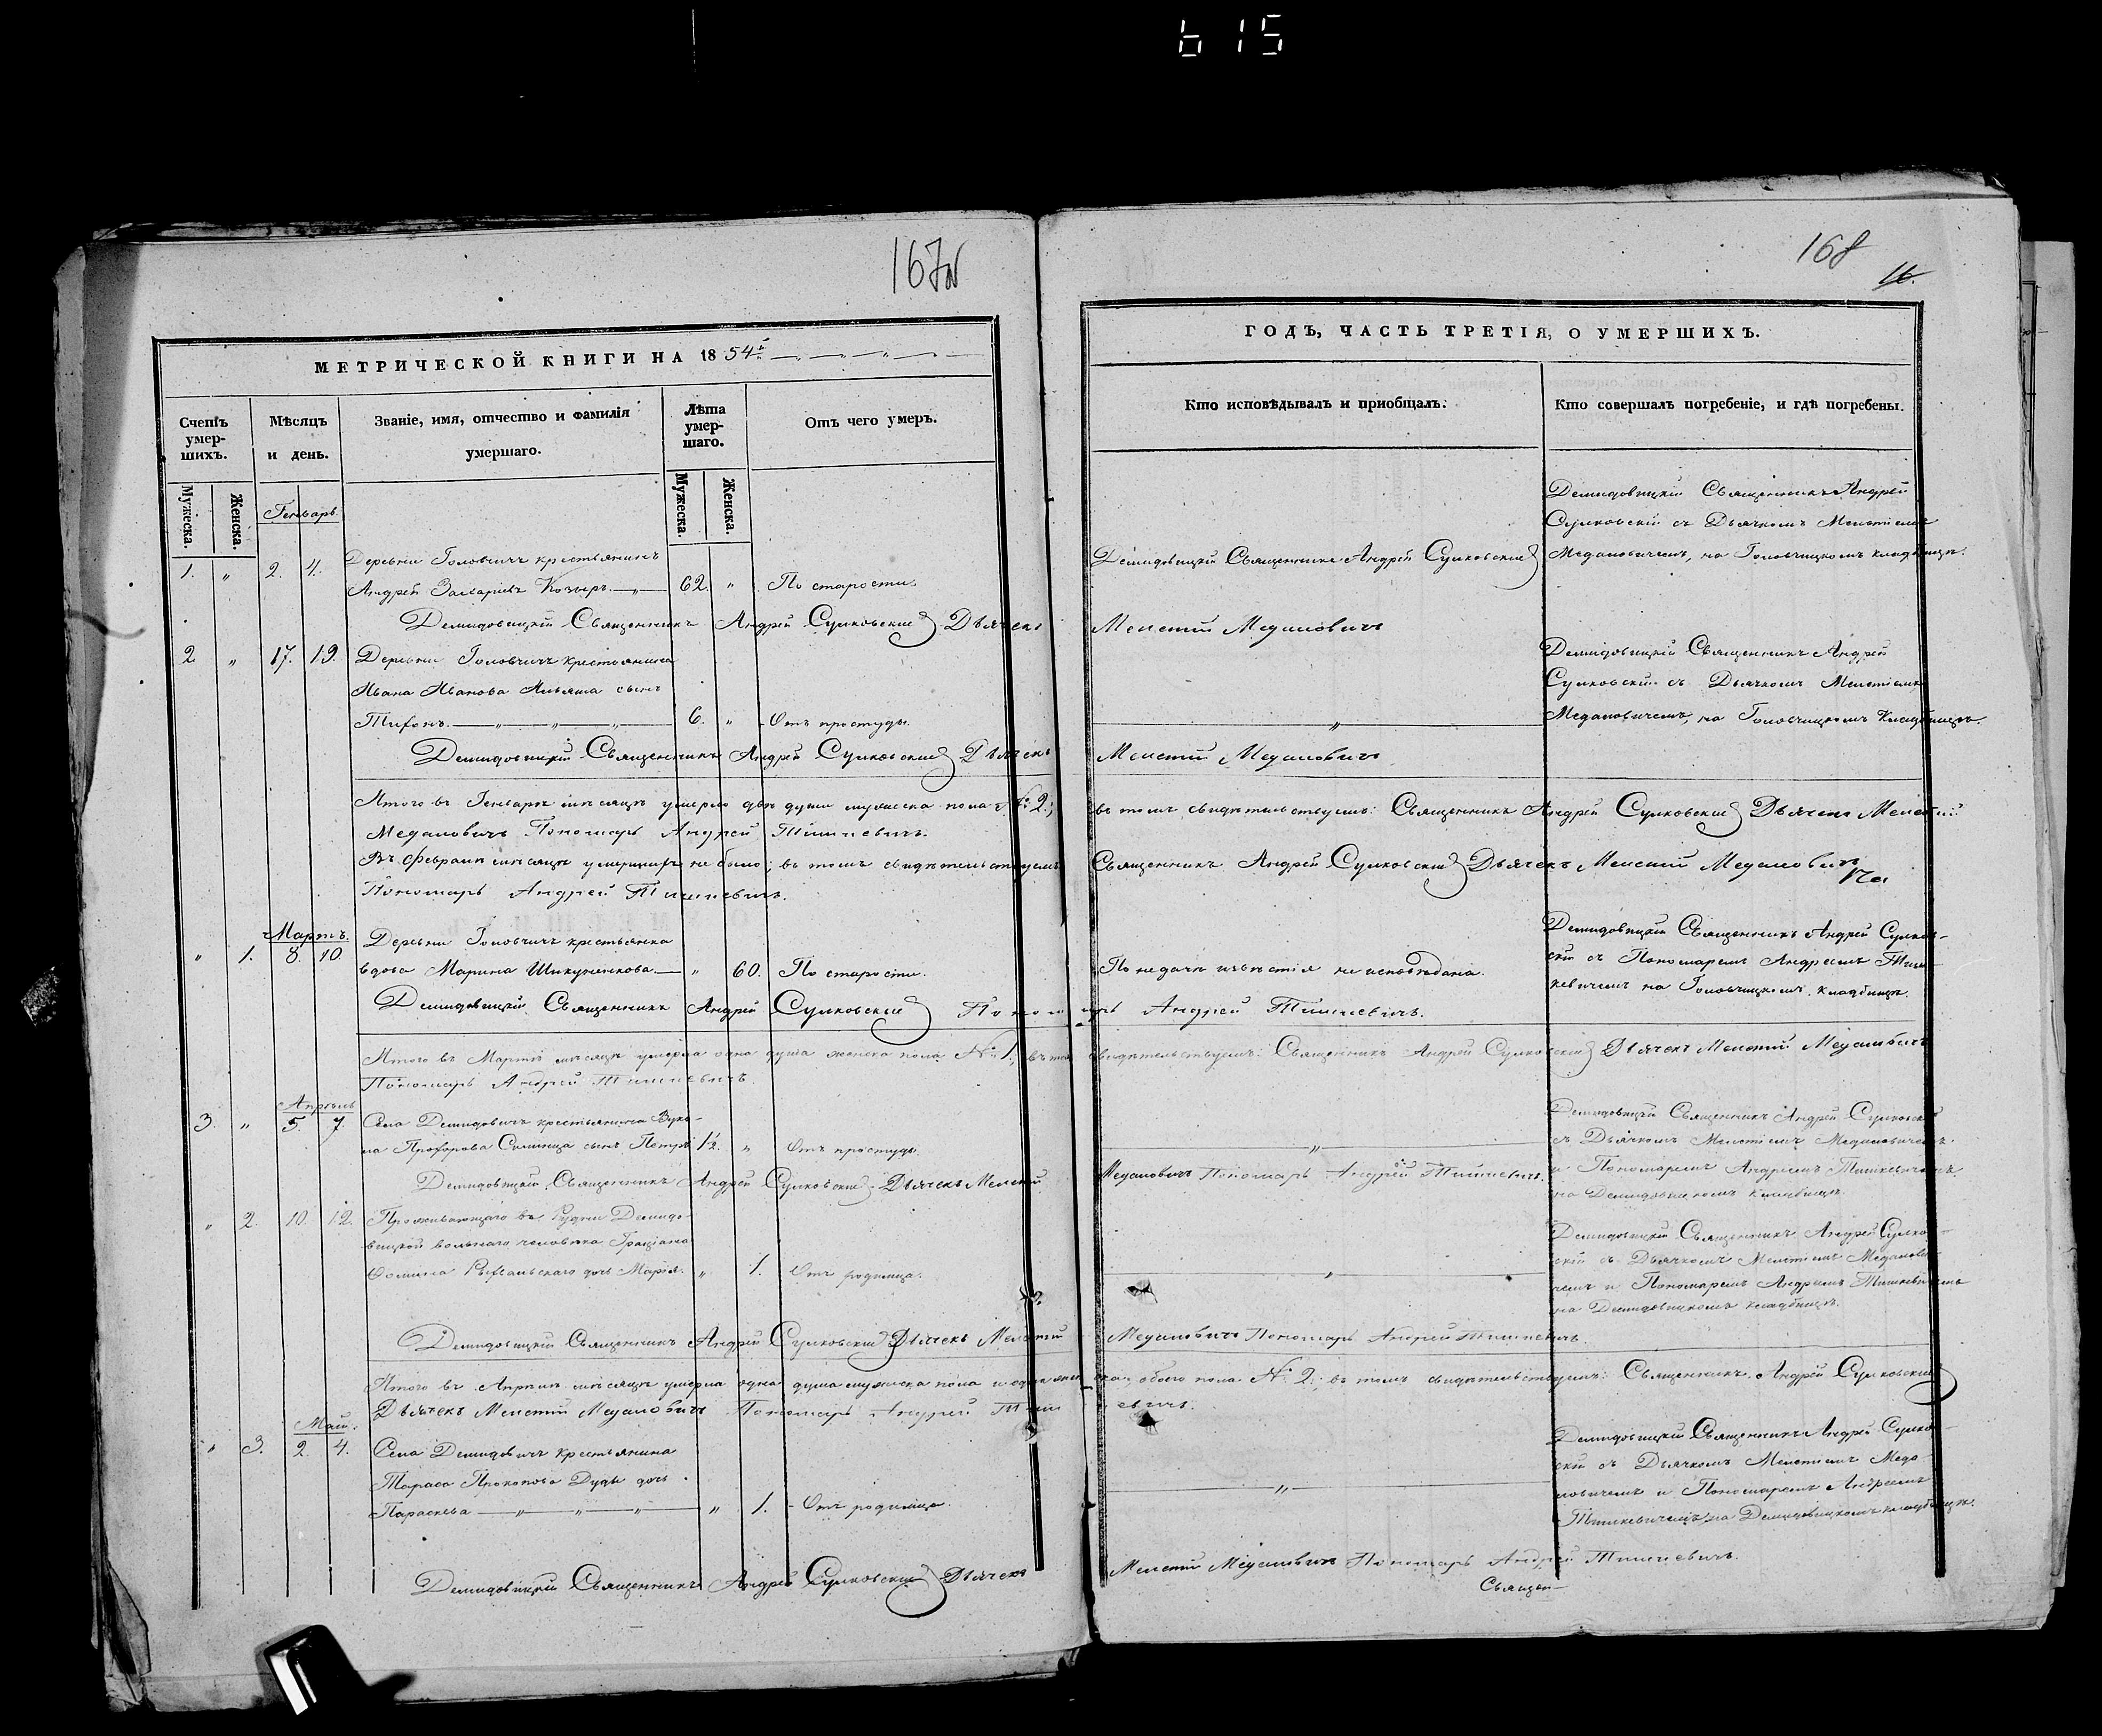 615
167об
168
16.
МЕТРИЧЕСКОЙ КНИГИ НА 1854й
ГОДЪ, ЧАСТЬ ТРЕТІЯ, О УМЕРШИХЪ.
Счетъ умер-шихъ.
Мужеска.
Женска.
Мѣсяцъ и день.
Званіе, имя, отчество и фамилія умершаго.
Лѣта умер-шаго.
Мужеска.
Женска.
Отъ чего умеръ.
Кто исповѣдывалъ и пріобщалъ.
Кто совершалъ погребеніе, и гдѣ погребены.
Генварь.
1. " 2. 4.
Деревни Головчичъ крестьянинъ
Андрей Захаріевъ Козыръ. 62. " По старости.
Демидовицкій Священникъ Андрей Сулковскій
Демидовицкій Священникъ Андрей
Сулковскій съ Дьячкомъ Мелетіемъ
Медановичемъ, на Головчицкомъ кладбищѣ.
Демидовицкій Священникъ Андрей Сулковскій Дьячекъ Мелетій Медановичъ
2. " 17. 19.
Деревни Головчичъ крестьянина
Ивана Иванова сынъ
Тифонъ. 6. " Отъ простуды.
"
Демидовицкій Священникъ Андрей
Сулковскій съ Дьячкомъ Мелетіемъ
Медановичемъ, на Головчицкомъ кладбищѣ.
Демидовицкій Священникъ Андрей Сулковскій Дьячекъ Мелетій Медановичъ
Итого въ Генварѣ мѣсяцѣ умерло двѣ души мужеска пола № 2.; въ томъ свидѣтельствуемъ: Священникъ Андрей Сулковскій Дьячекъ Мелетій
Медановичъ Пономарь Андрей Тишкевичъ.
Въ Февралѣ мѣсяцѣ умершихъ не было; въ томъ свидѣтельствуемъ Священникъ Андрей Сулковскій Дьячекъ Мелетій Медановичъ
Пономарь Андрей Тишкевичъ.
Мартъ.
" 1. 8. 10.
Деревни Головчичъ крестьянка
вдова Марина Шикуненкова " 60. По старости.
По недачѣ извѣстія не исповѣдана.
Демидовицкій Священникъ Андрей Сулков-
скій съ Пономаремъ Андреемъ Тиш-
кевичемъ на Головчицкомъ кладбищѣ.
Демидовицкій Священникъ Андрей Сулковскій Пономарь Андрей Тишкевичъ.
Итого въ Мартѣ мѣсяцѣ умерла одна душа женска пола № 1; въ томъ свидѣтельствуемъ: Священникъ Андрей Сулковскій Дьячекъ Мелетій Медановичъ
Пономарь Андрей Тишкевичъ.
Апрѣль
3. " 5. 7
Села Демидовичъ крестьянина
Прохорова сынъ Петръ 1½. " Отъ простуды.
"
Демидовицкій Священникъ Андрей Сулковскій
съ Дьячкомъ Мелетіемъ Медановичемъ
и Пономаремъ Андреемъ Тишкевичемъ
на Демидовицкомъ кладбищѣ.
Демидовицкій Священникъ Андрей Сулковскій Дьячекъ Мелетій Медановичъ Пономарь Андрей Тишкевичъ.
" 2. 10. 12.
Проживающаго въ Рудни Демидо-
вицкой вольнаго человѣка
дочь Марія. " 1. Отъ родимца.
"
Демидовицкій Священникъ Андрей Сулков-
скій съ Дьячкомъ Мелетіемъ Меданови-
чемъ и Пономаремъ Андреемъ Тишкевичемъ
на Демидовицкомъ кладбищѣ.
Демидовицкій Священникъ Андрей Сулковскій Дьячекъ Мелетій Медановичъ Пономарь Андрей Тишкевичъ.
Итого въ Апрѣлѣ мѣсяцѣ умерла одна душа мужеска пола и одна женска, обоего пола № 2.; въ томъ свидѣтельствуемъ: Священникъ Андрей Сулковскій
Дьячекъ Мелетій Медановичъ Пономарь Андрей Тишкевичъ.
Май.
" 3. 2. 4.
Села Демидовичъ крестьянина
Тараса Прокопова Дуды дочь
Параскева " 1. Отъ родимца.
"
Демидовицкій Священникъ Андрей Сулков-
скій съ Дьячкомъ Мелетіемъ Меда-
новичемъ и Пономаремъ Андреемъ
Тишкевичемъ, на Демидовицкомъ кладбищѣ.
Демидовицкій Священникъ Андрей Сулковскій Дьячекъ Мелетій Медановичъ Пономарь Андрей Тишкевичъ.
Священ-